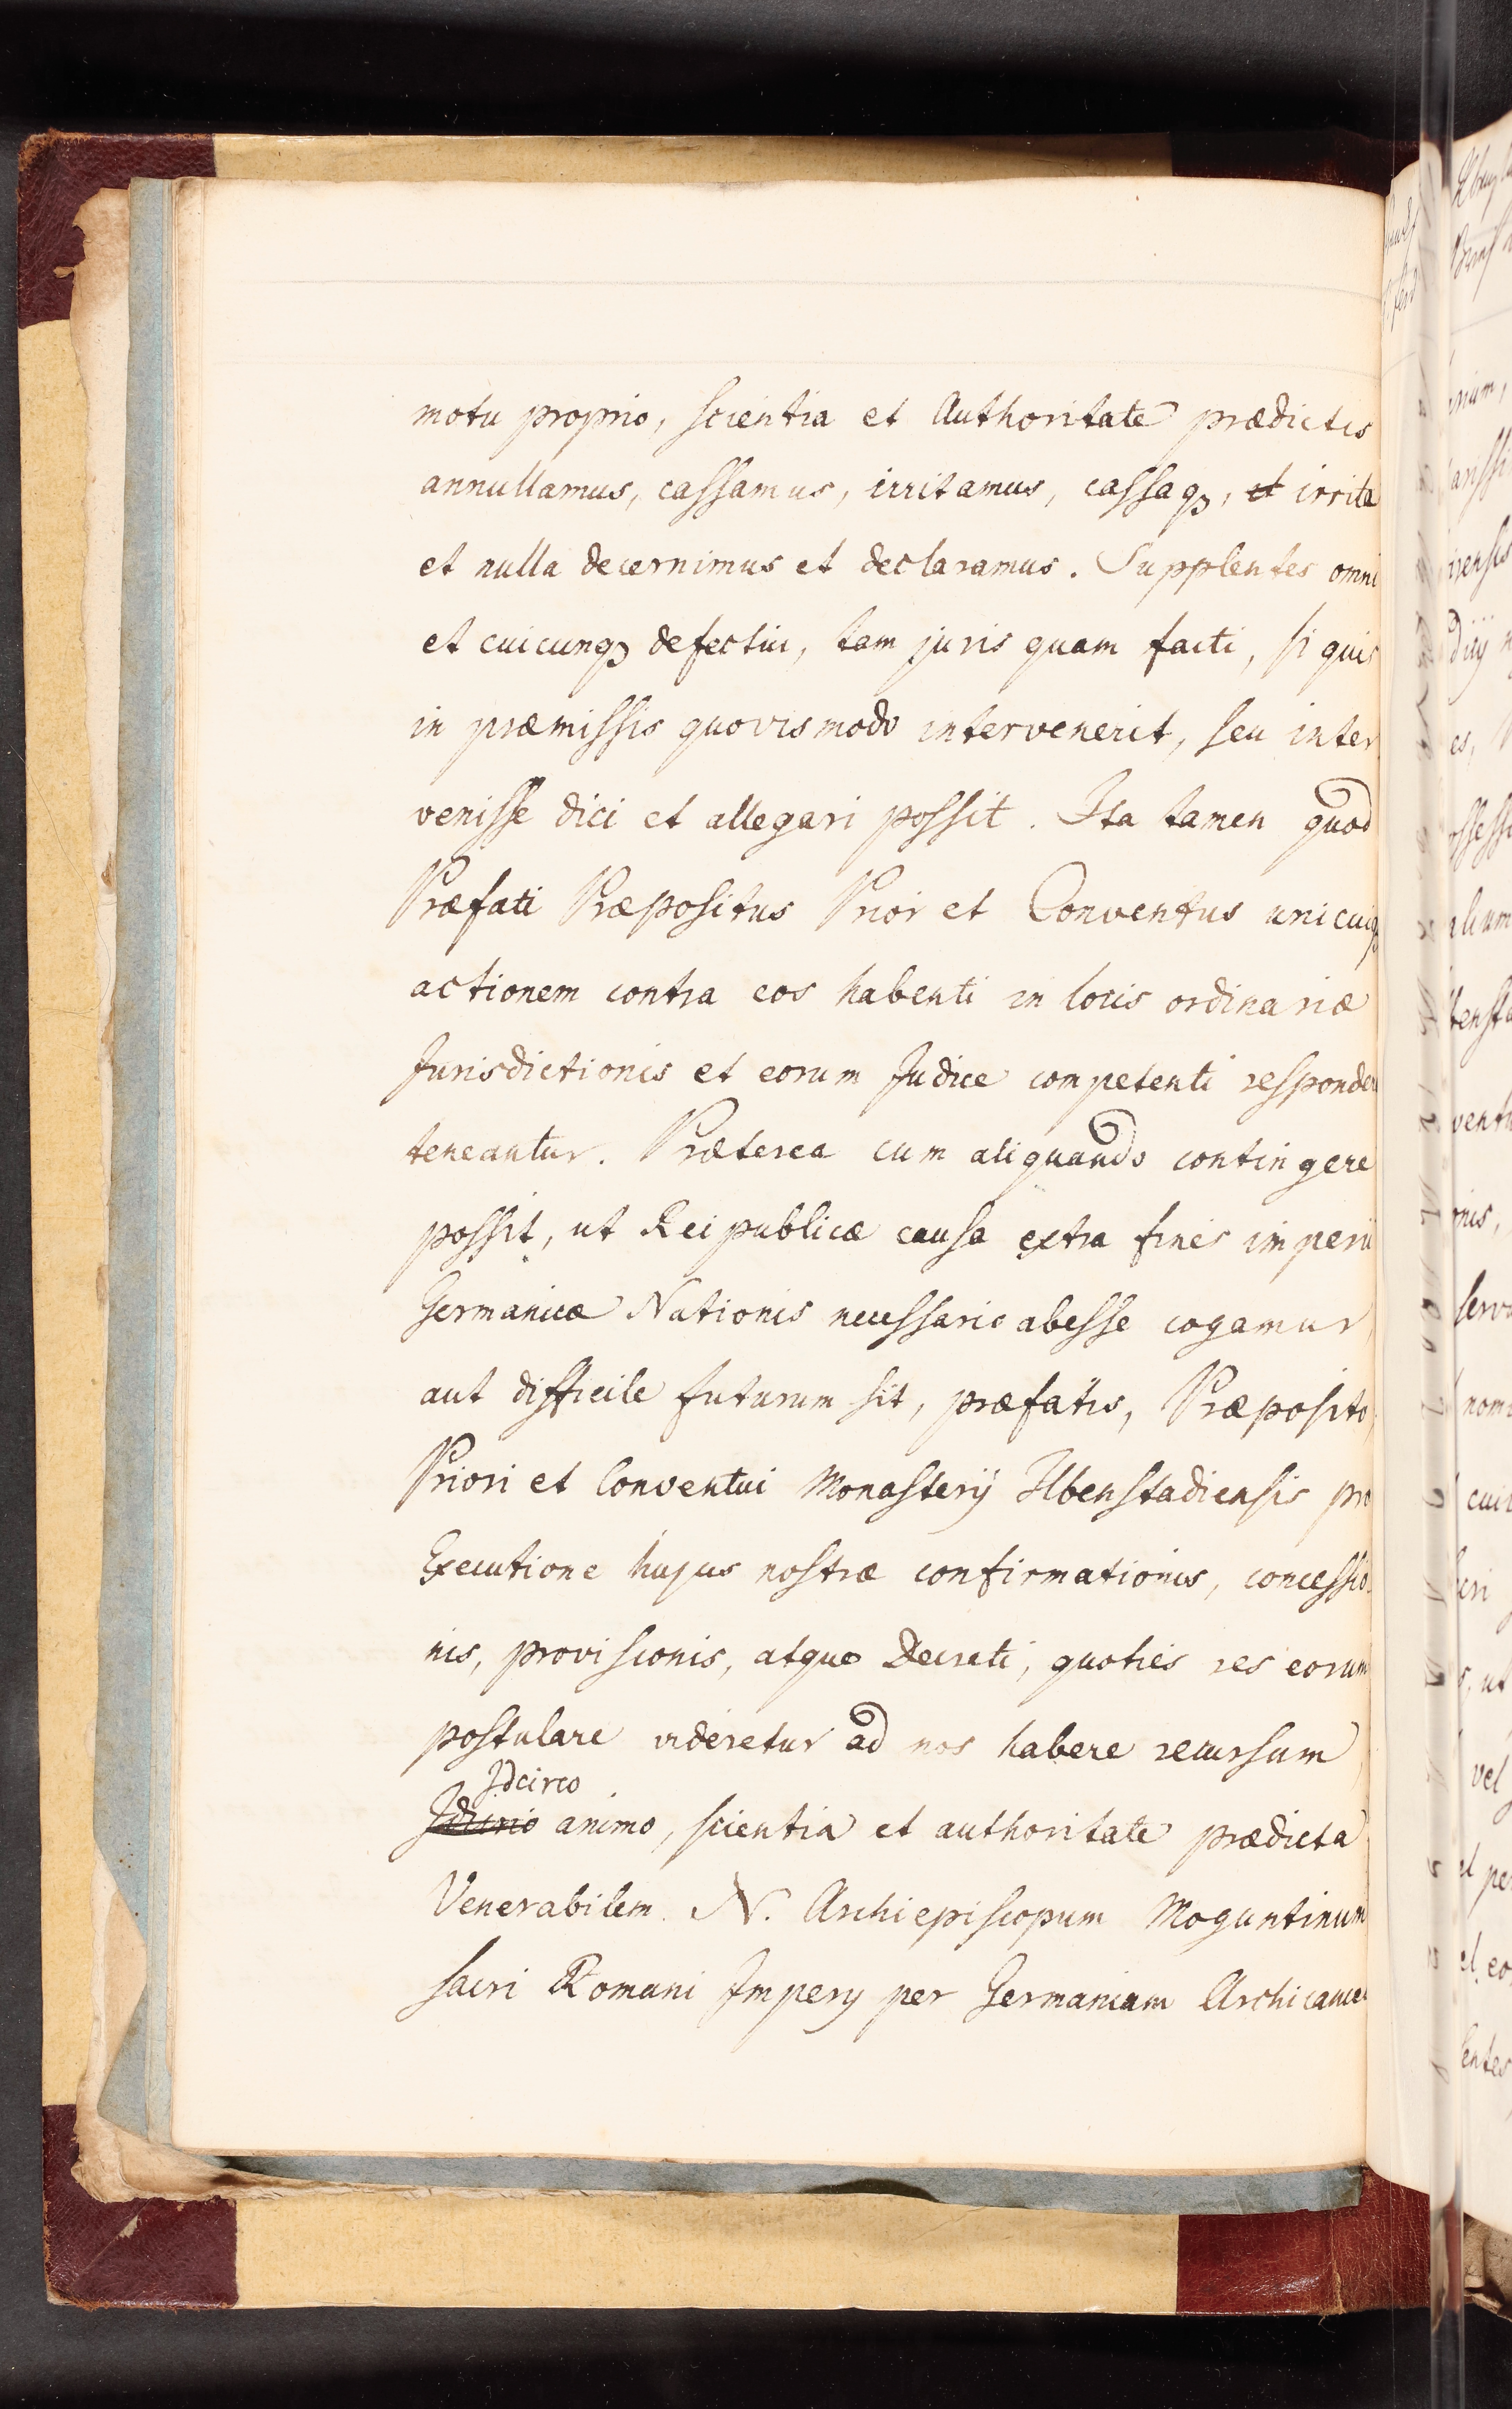 motu proprio, scientia et Authoritate prædictis
annullamus, cassamus, irritamus, cassaq3, et irrita
et nulla decernimus et declaramus. Supplentes omni
et cuicunq3 defectui, tam juris quam facti, si quis
in præmissis quovismodo intervenerit, seu inter
venisse dici et allegari possit. Ita tamen quod
Præfati Præpositus Prior et Conventus unicuiq3
actionem contra eos habenti in locis ordinariæ
Jurisdictionis et eorum Judice competenti responder
teneantur. Præterea cum aliquando contingere
possit, ut Reipublicæ causa extra fines imperii
Germanicæ Nationis necessario abesse cogamur,
aut difficile futurum sit, præfatis, Præposito,
Priori et Conventui Monasterij Ilbenstadiensis pro
Executione hujus nostræ confirmationis, concessio-
nis, provisionis, atque Decreti, quoties res eorum
postulare videretur ad nos habere recursum,
Idcirco
animo, scientia et authoritate prædicta
Venerabilem N. Archiepiscopum Moguntinum
sacri Romani Imperij per Germaniam Archicancel